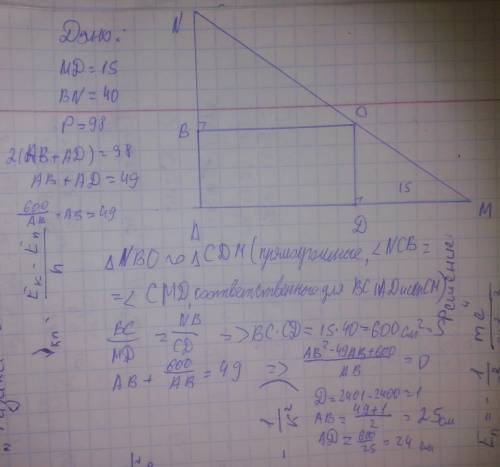 Дано:
MD = 15
BN = 40
P = 98
2(AB + AD) = 98
AB + AD = 49
600/AB + AB = 49
N
B
O
15
A
D
M
△NBO ~ △CDM (прямоугольные, ∠NCB =
= ∠CMD, соответственно для BC || AD и
BC/MD = NB/CD => BC·CD = 15·40 = 600 см²
AB + 600/AB = 49 => (AB² - 49AB + 600)/AB = 0
D = 2401 - 2400 = 1
AB = (49+1)/2 = 25 см
AD = 600/25 = 24 см
Решение
Eк - Eп
h
1/к²